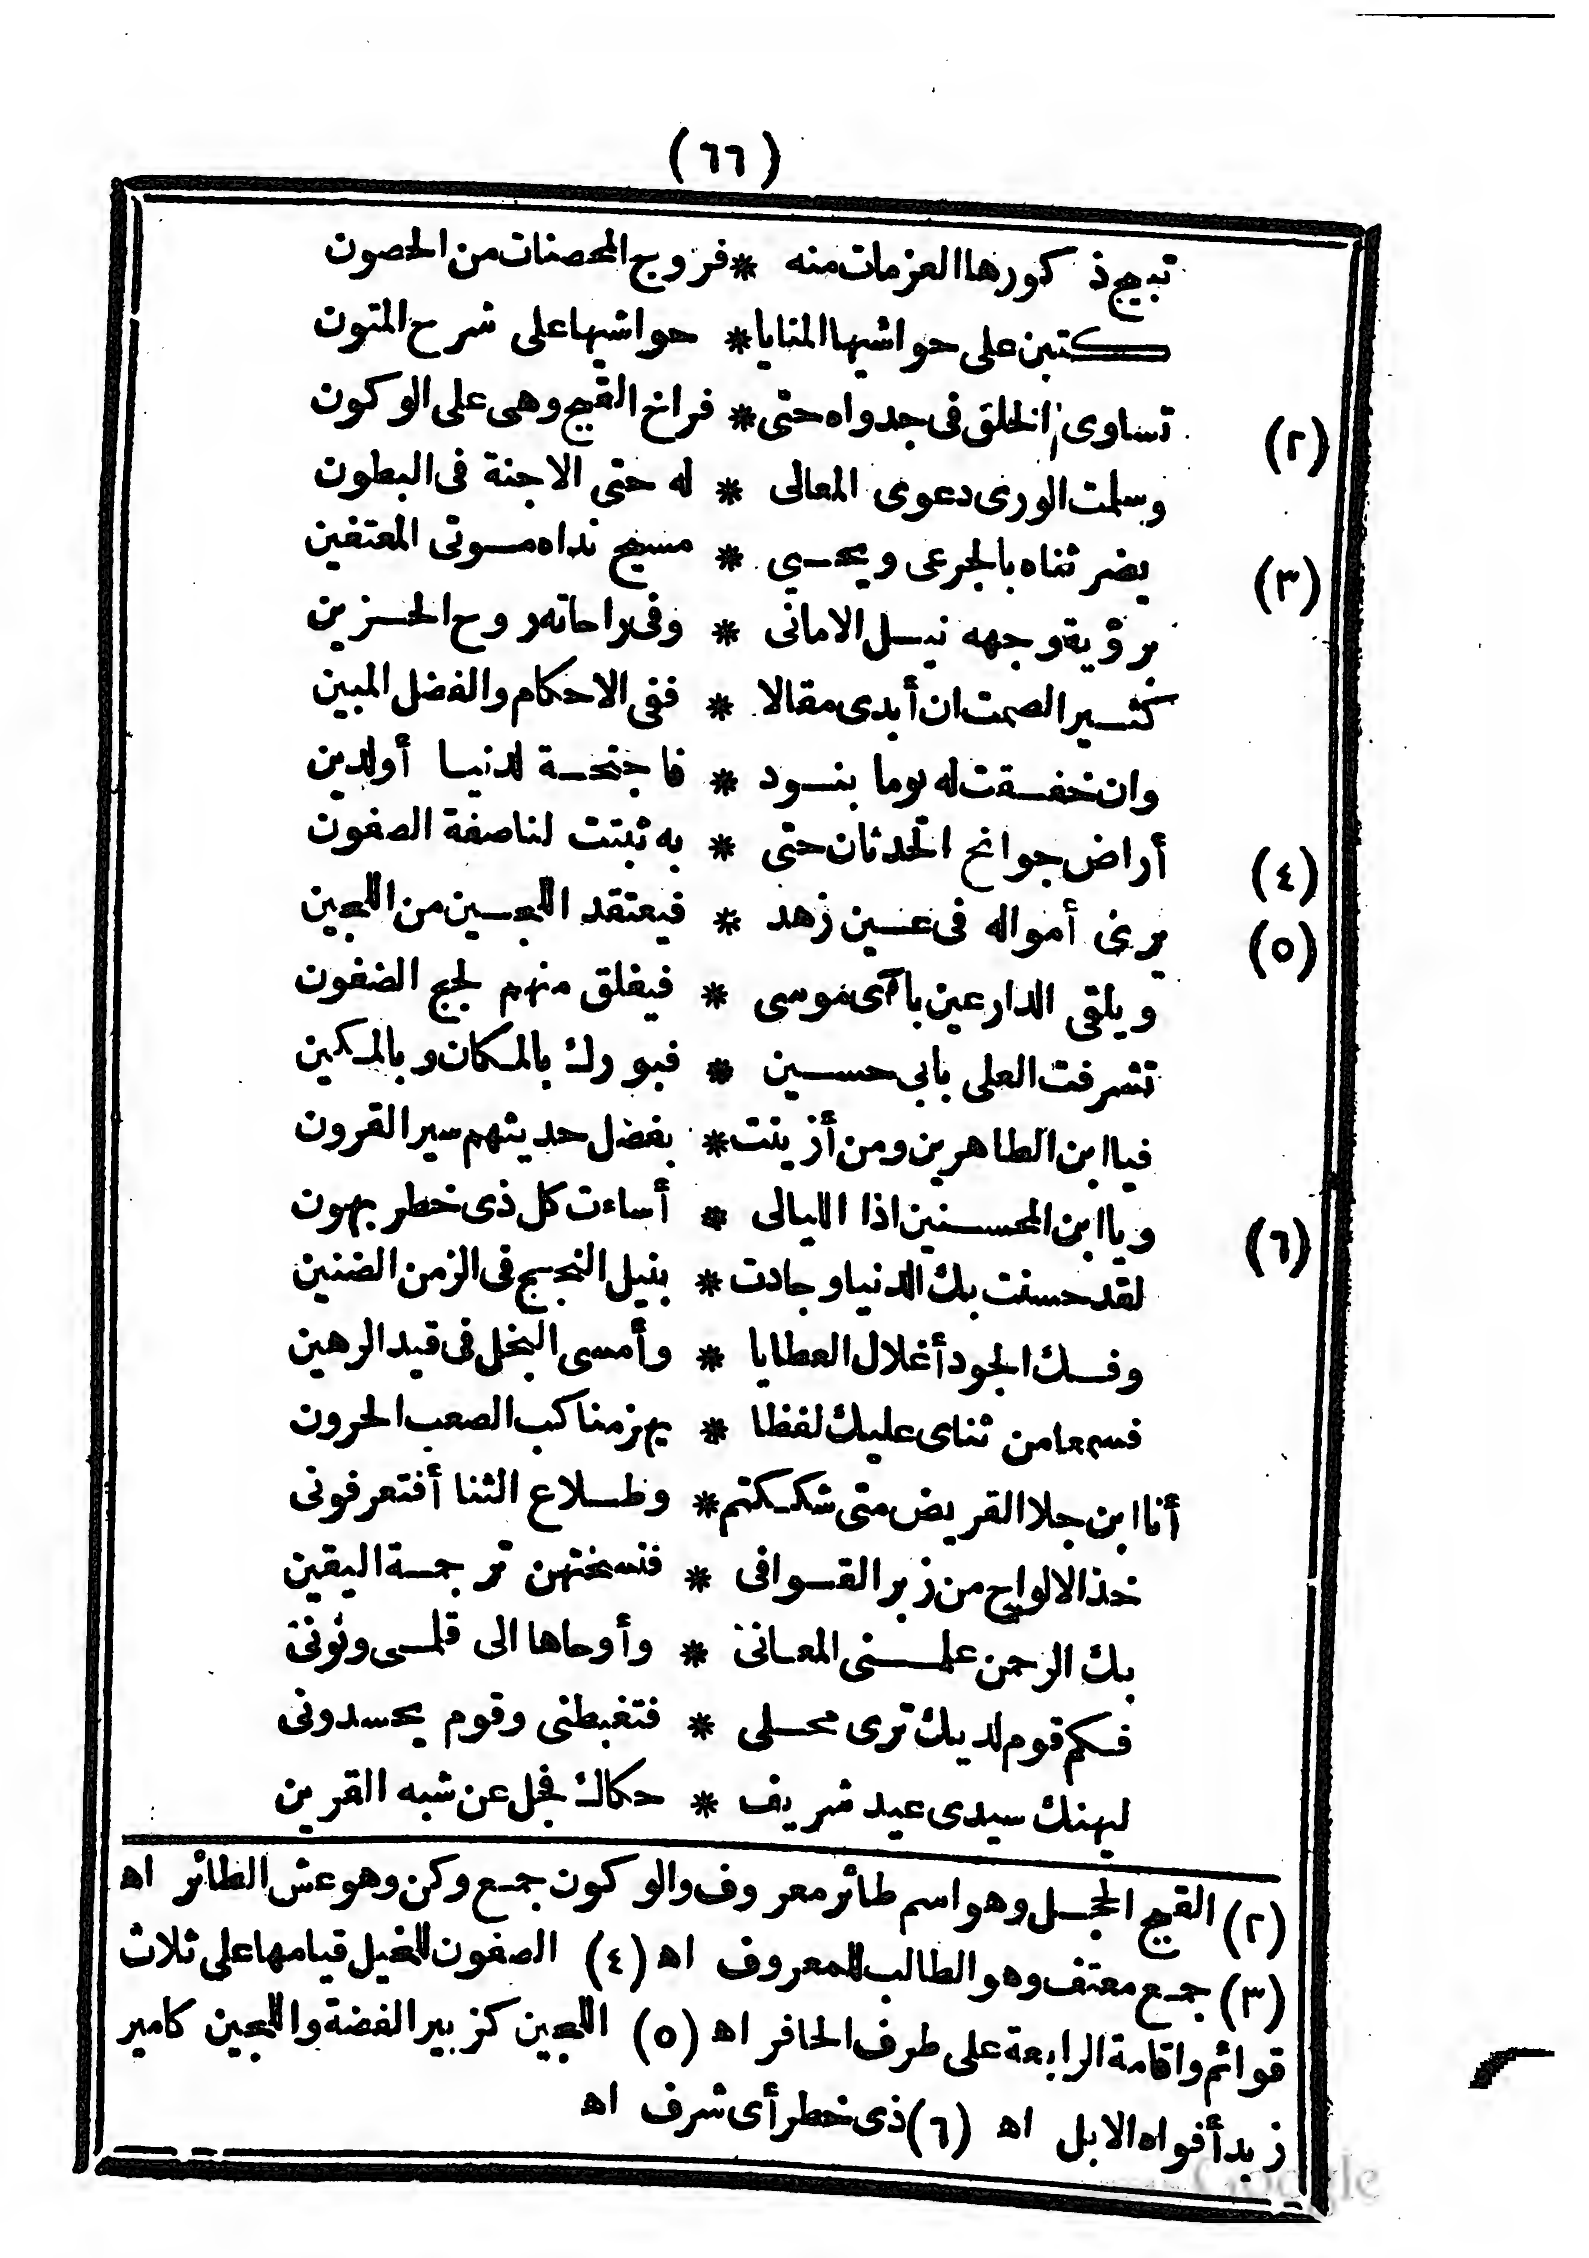 (٦٦)
تبيح ذكورها العزمات منه * فروج المحصنات من الحصون
كتبن على حواشيها المنايا * حواشيها على شرح المتون
(٢) تساوى الخلق فى جدواه حتى * فراخ القبج وهى على الوكون
وسلمت الورى دعوى المعالى * له حتى الاجنة فى البطون
(٣) يضر ثناه بالجرعى ويحيي * مسيح نداه موتى المعتفين
برؤية وجهه نيل الامانى * وفى راحاته روح الحزين
كثير الصمت ان أبدى مقالا * ففى الاحكام والفضل المبين
وان خفقت له يوما بنود * فاجنحة لدنيا أولدين
(٤) أراض جوانح الحدثان حتى * به ثبتت لناصفة الصفون
(٥) يرى أمواله فى عين زهد * فيعتقد اللجين من اللجين
ويلقى الدارعين بآى موسى * فيفلق منهم لجج الضفون
تشرفت العلى بابى حسين * فبورك بالمكان وبالمكين
فيا ابن الطاهرين ومن أزينت * بفضل حديثهم سير القرون
(٦) ويا ابن المحسنين اذا الليالى * أساءت كل ذى خطر بهون
لقد حسنت بك الدنيا وجادت * بنيل النجح فى الزمن الضنين
وفك الجود أغلال العطايا * وأمسى البخل فى قيد الرهين
فسمعا من ثناى عليك لفظا * يهز مناكب الصعب الحرون
أنا ابن جلا القريض متى شككتم * وطلاع الثنا أفتعرفونى
خذ الالواح من زبر القوافى * فنسختهن ترجمة اليقين
بك الرحمن علمنى المعانى * وأوحاها الى قلمى ونونى
فكم قوم لديك ترى محلى * فتغبطنى وقوم يحسدونى
ليهنك سيدى عيد شريف * حكاك فجل عن شبه القرين
(٢) القبج الحجل وهو اسم طائر معروف والوكون جمع وكن وهو عش الطائر اه
(٣) جمع معتف وهو الطالب للمعروف اه (٤) الصفون للخيل قيامها على ثلاث
قوائم واقامة الرابعة على طرف الحافر اه (٥) اللجين كزبير الفضة واللجين كامير
زبد أفواه الابل اه (٦) ذى خطر أى شرف اه
Google